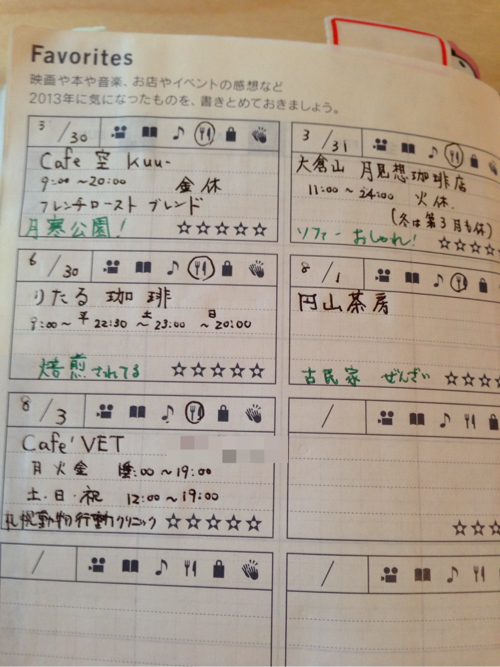 Favorites
映画や本や音楽、お店やイベントの感想など
2013年に気になったものを、書きとめておきましょう。
3/30
Cafe 空 kuu-
9:00~20:00 金休
フレンチロースト ブレンド
月寒公園! ☆☆☆☆☆
3/31
大倉山 月見想珈琲店
11:00~24:00 火休.
(冬は第3月も休)
ソファーおしゃれ! ☆☆☆☆
6/30
りたる珈琲
平 土 日
9:00~22:30 ~23:00 ~20:00
焙煎されてる ☆☆☆☆☆
8/1
円山茶房
古民家 ぜんざい ☆☆☆☆
8/3
Cafe' VET
月火金 :00~19:00
土・日・祝 12:00~19:00
札幌動物行動クリニック ☆☆☆☆☆
/
☆☆☆
/
/